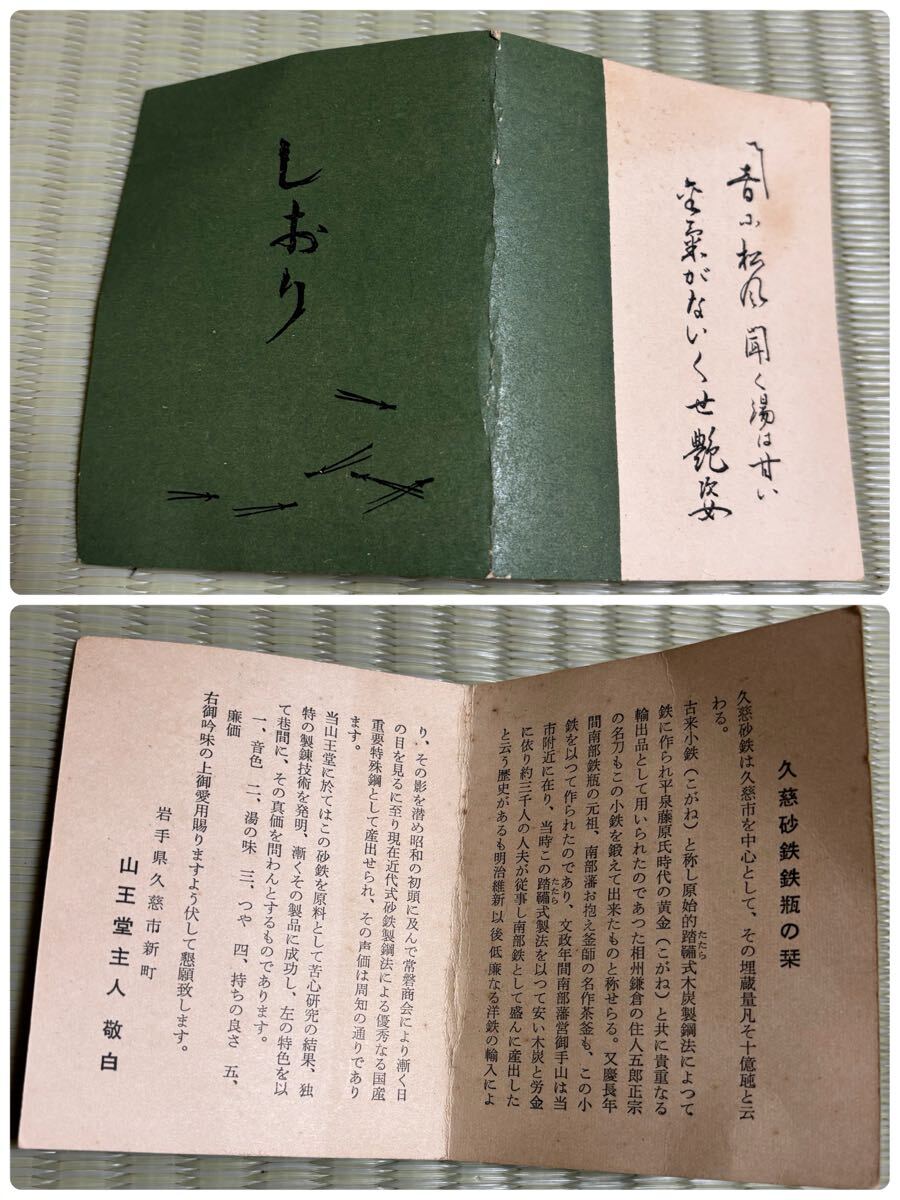 しおり
音に松風聞く湯は甘い
金気がないくせ艶姿
久慈砂鉄鉄瓶の栞
久慈砂鉄は久慈市を中心として、その埋蔵量凡そ十億瓲と云
わる。
古来小鉄（こがね）と称し原始的踏鞴式木炭製鋼法によつて
たたら
鉄に作られ平泉藤原氏時代の黄金（こがね）と共に貴重なる
輸出品として用いられたのであつた相州鎌倉の住人五郎正宗
の名刀もこの小鉄を鍛えて出来たものと称せらる。又慶長年
間南部鉄瓶の元祖、南部藩お抱え釜師の名作茶釜も、この小
鉄を以つて作られたのであり、文政年間南部藩営御手山は当
市附近に在り、当時この踏鞴式製法を以つて安い木炭と労金
たたら
に依り約三千人の人夫が従事し南部鉄として盛んに産出した
と云う歴史があるも明治維新以後低廉なる洋鉄の輸入によ
り、その影を潜め昭和の初頭に及んで常磐商会により漸く日
の目を見るに至り現在近代式砂鉄製鋼法による優秀なる国産
重要特殊鋼として産出せられ、その声価は周知の通りであり
ます。
当山王堂に於てはこの砂鉄を原料として苦心研究の結果、独
特の製錬技術を発明、漸くその製品に成功し、左の特色を以
て巷間に、その真価を問わんとするものであります。
一、音色　二、湯の味　三、つや　四、持ちの良さ　五、
廉価
右御吟味の上御愛用賜りますよう伏して懇願致します。
岩手県久慈市新町
山王堂主人　敬白